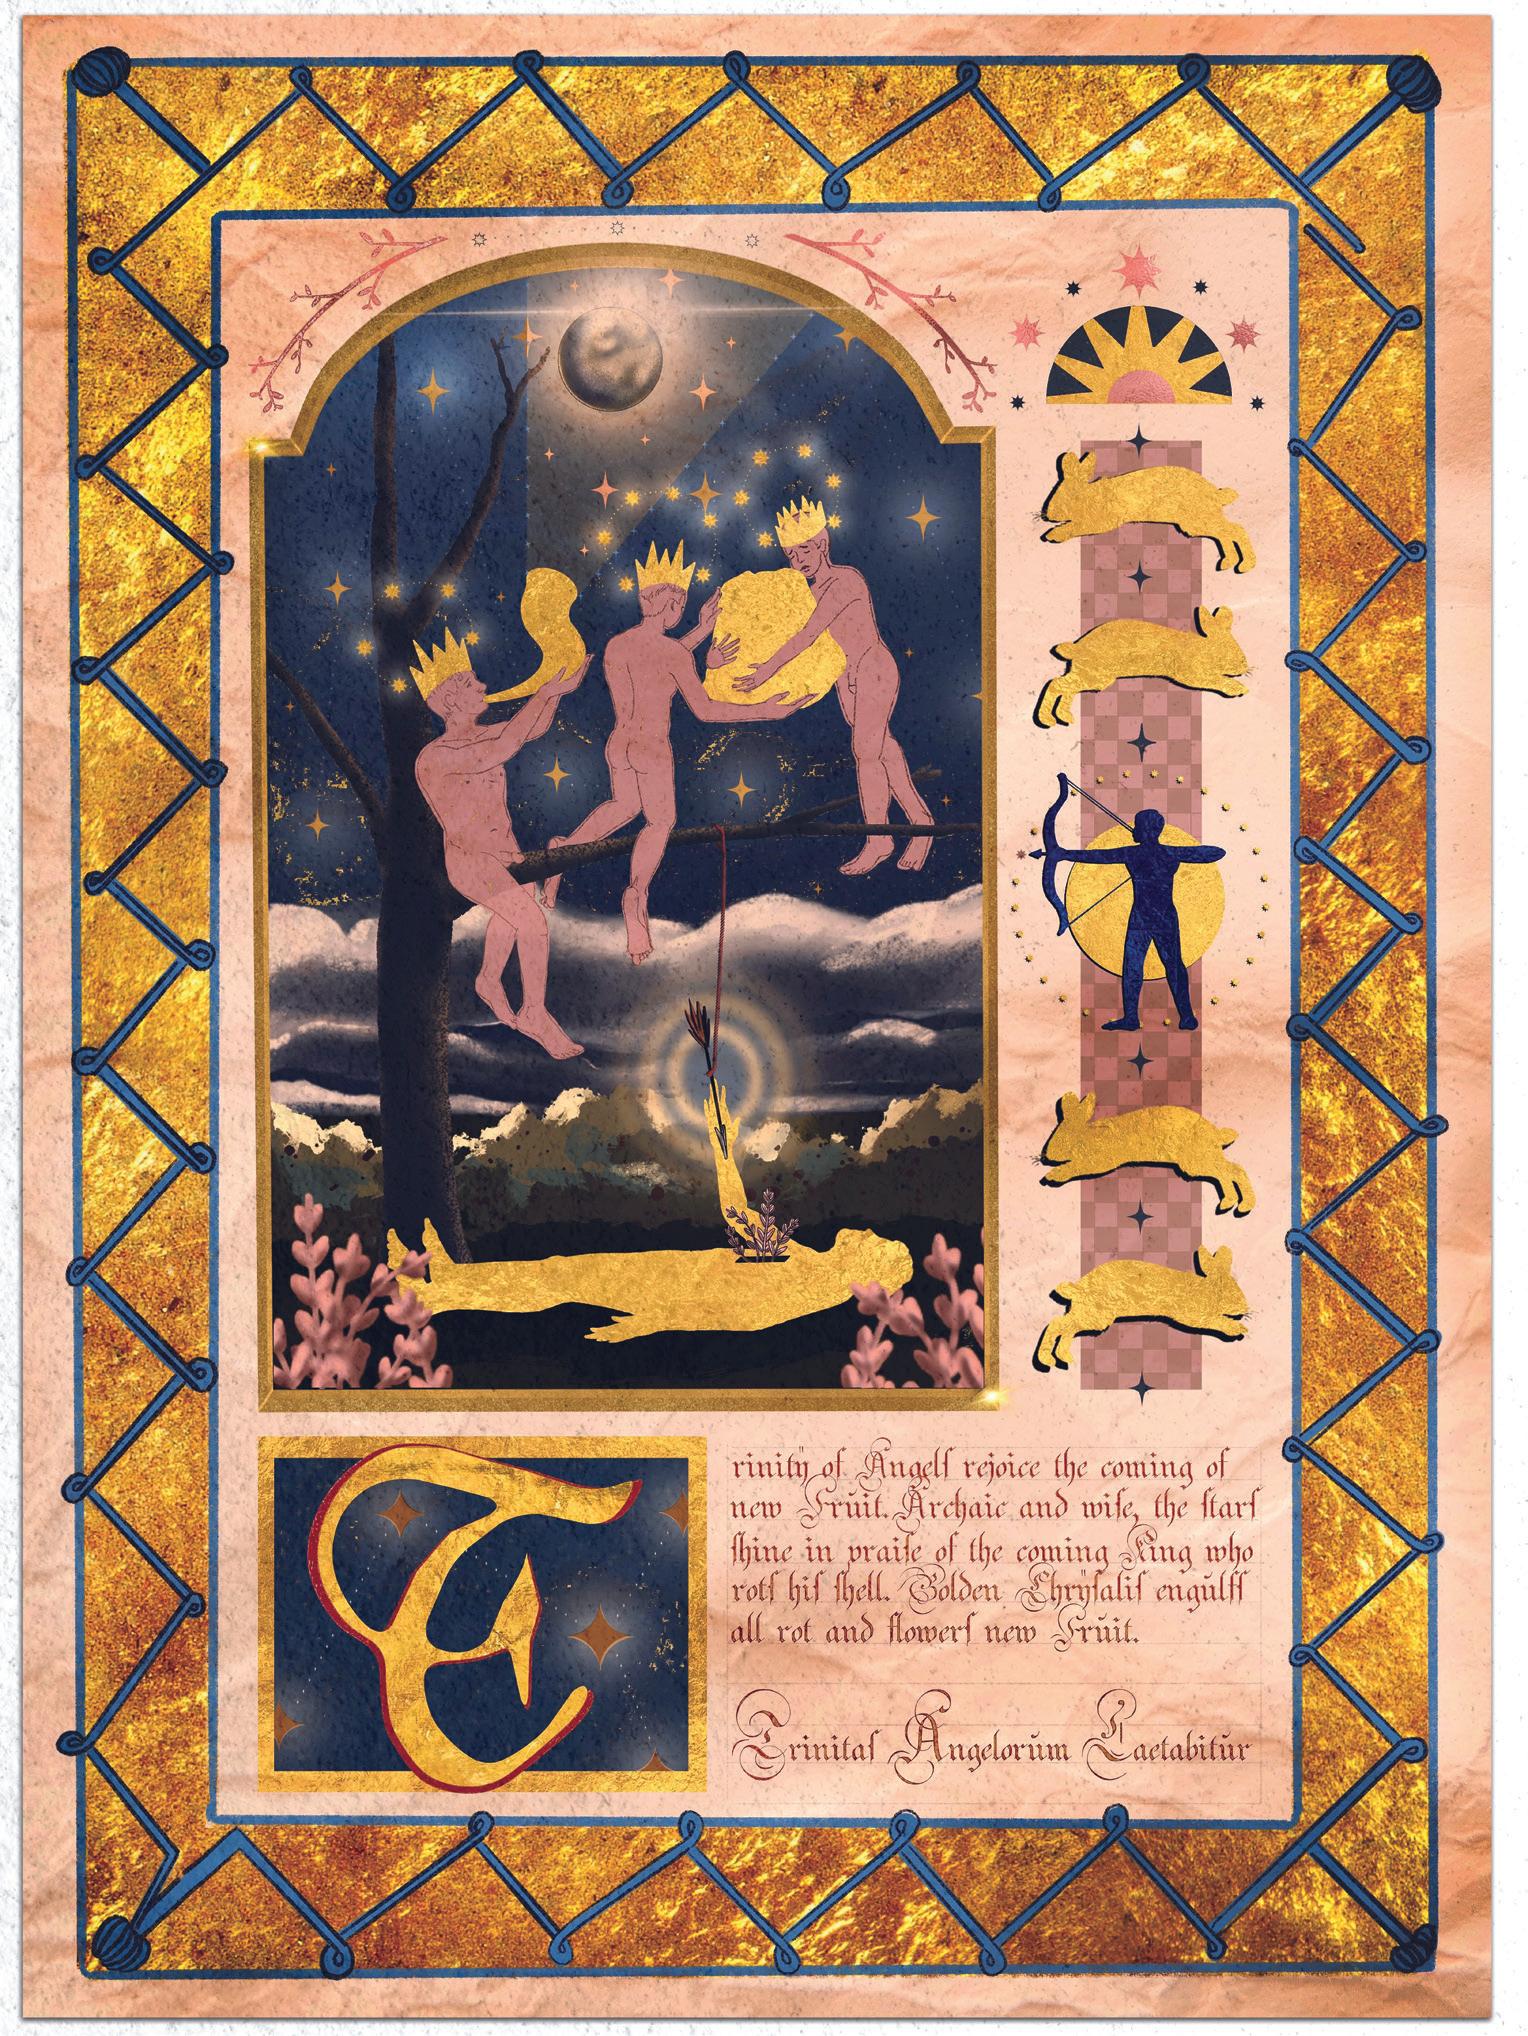 Trinity of Angels rejoice the coming of
new Fruit. Archaic and wise, the stars
shine in praise of the coming King who
rots his shell. Golden Chrysalis engulfs
all rot and flowers new Fruit.
Trinitas Angelorum Laetabitur